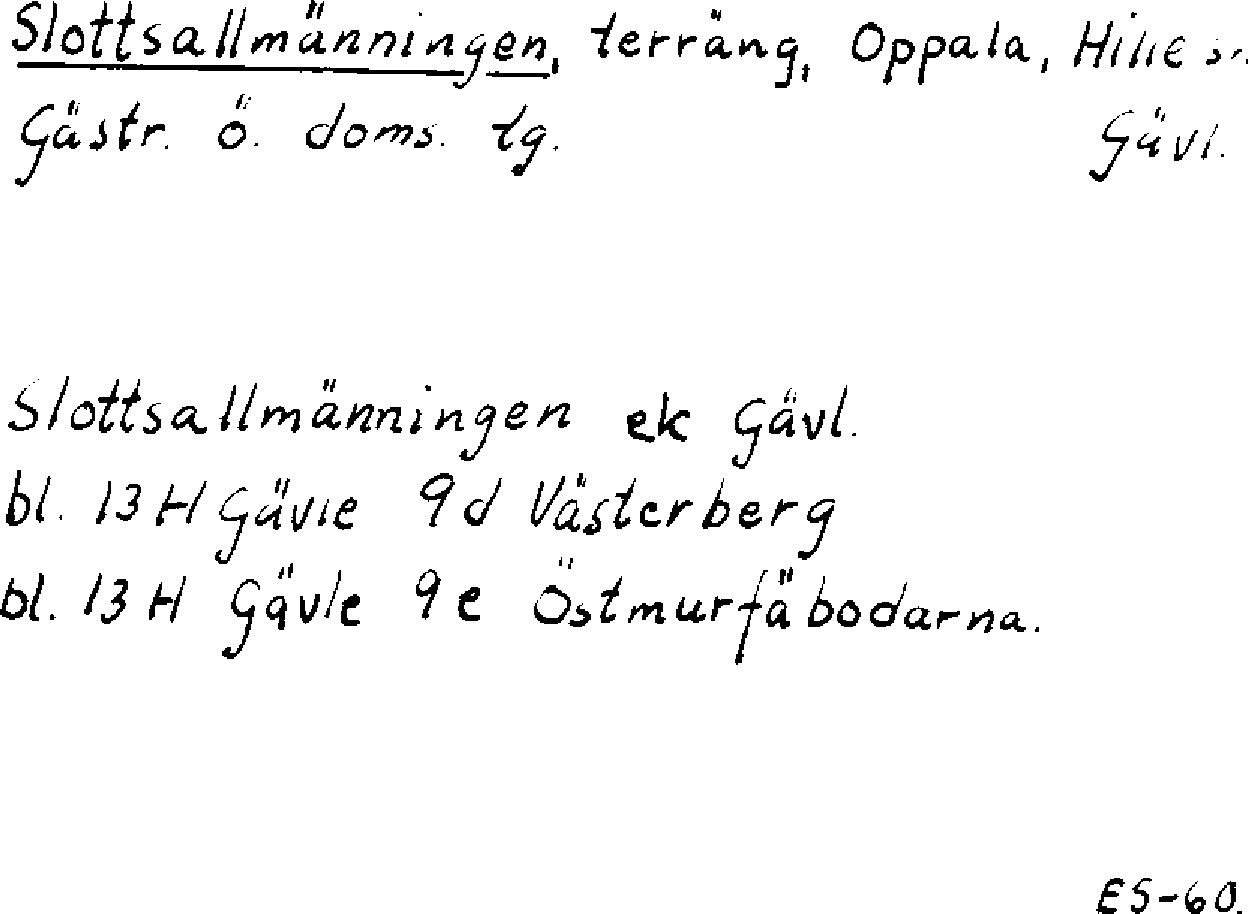 Slottsallmänningen, terräng, Oppala, Hille sn
Gästr. ö. doms. tg. Gävl.
Slottsallmänningen ek Gävl.
bl. 13 H Gävle 9 d Västerberg
bl. 13 H Gävle 9 e Östmurfäbodarna.
ES-60.